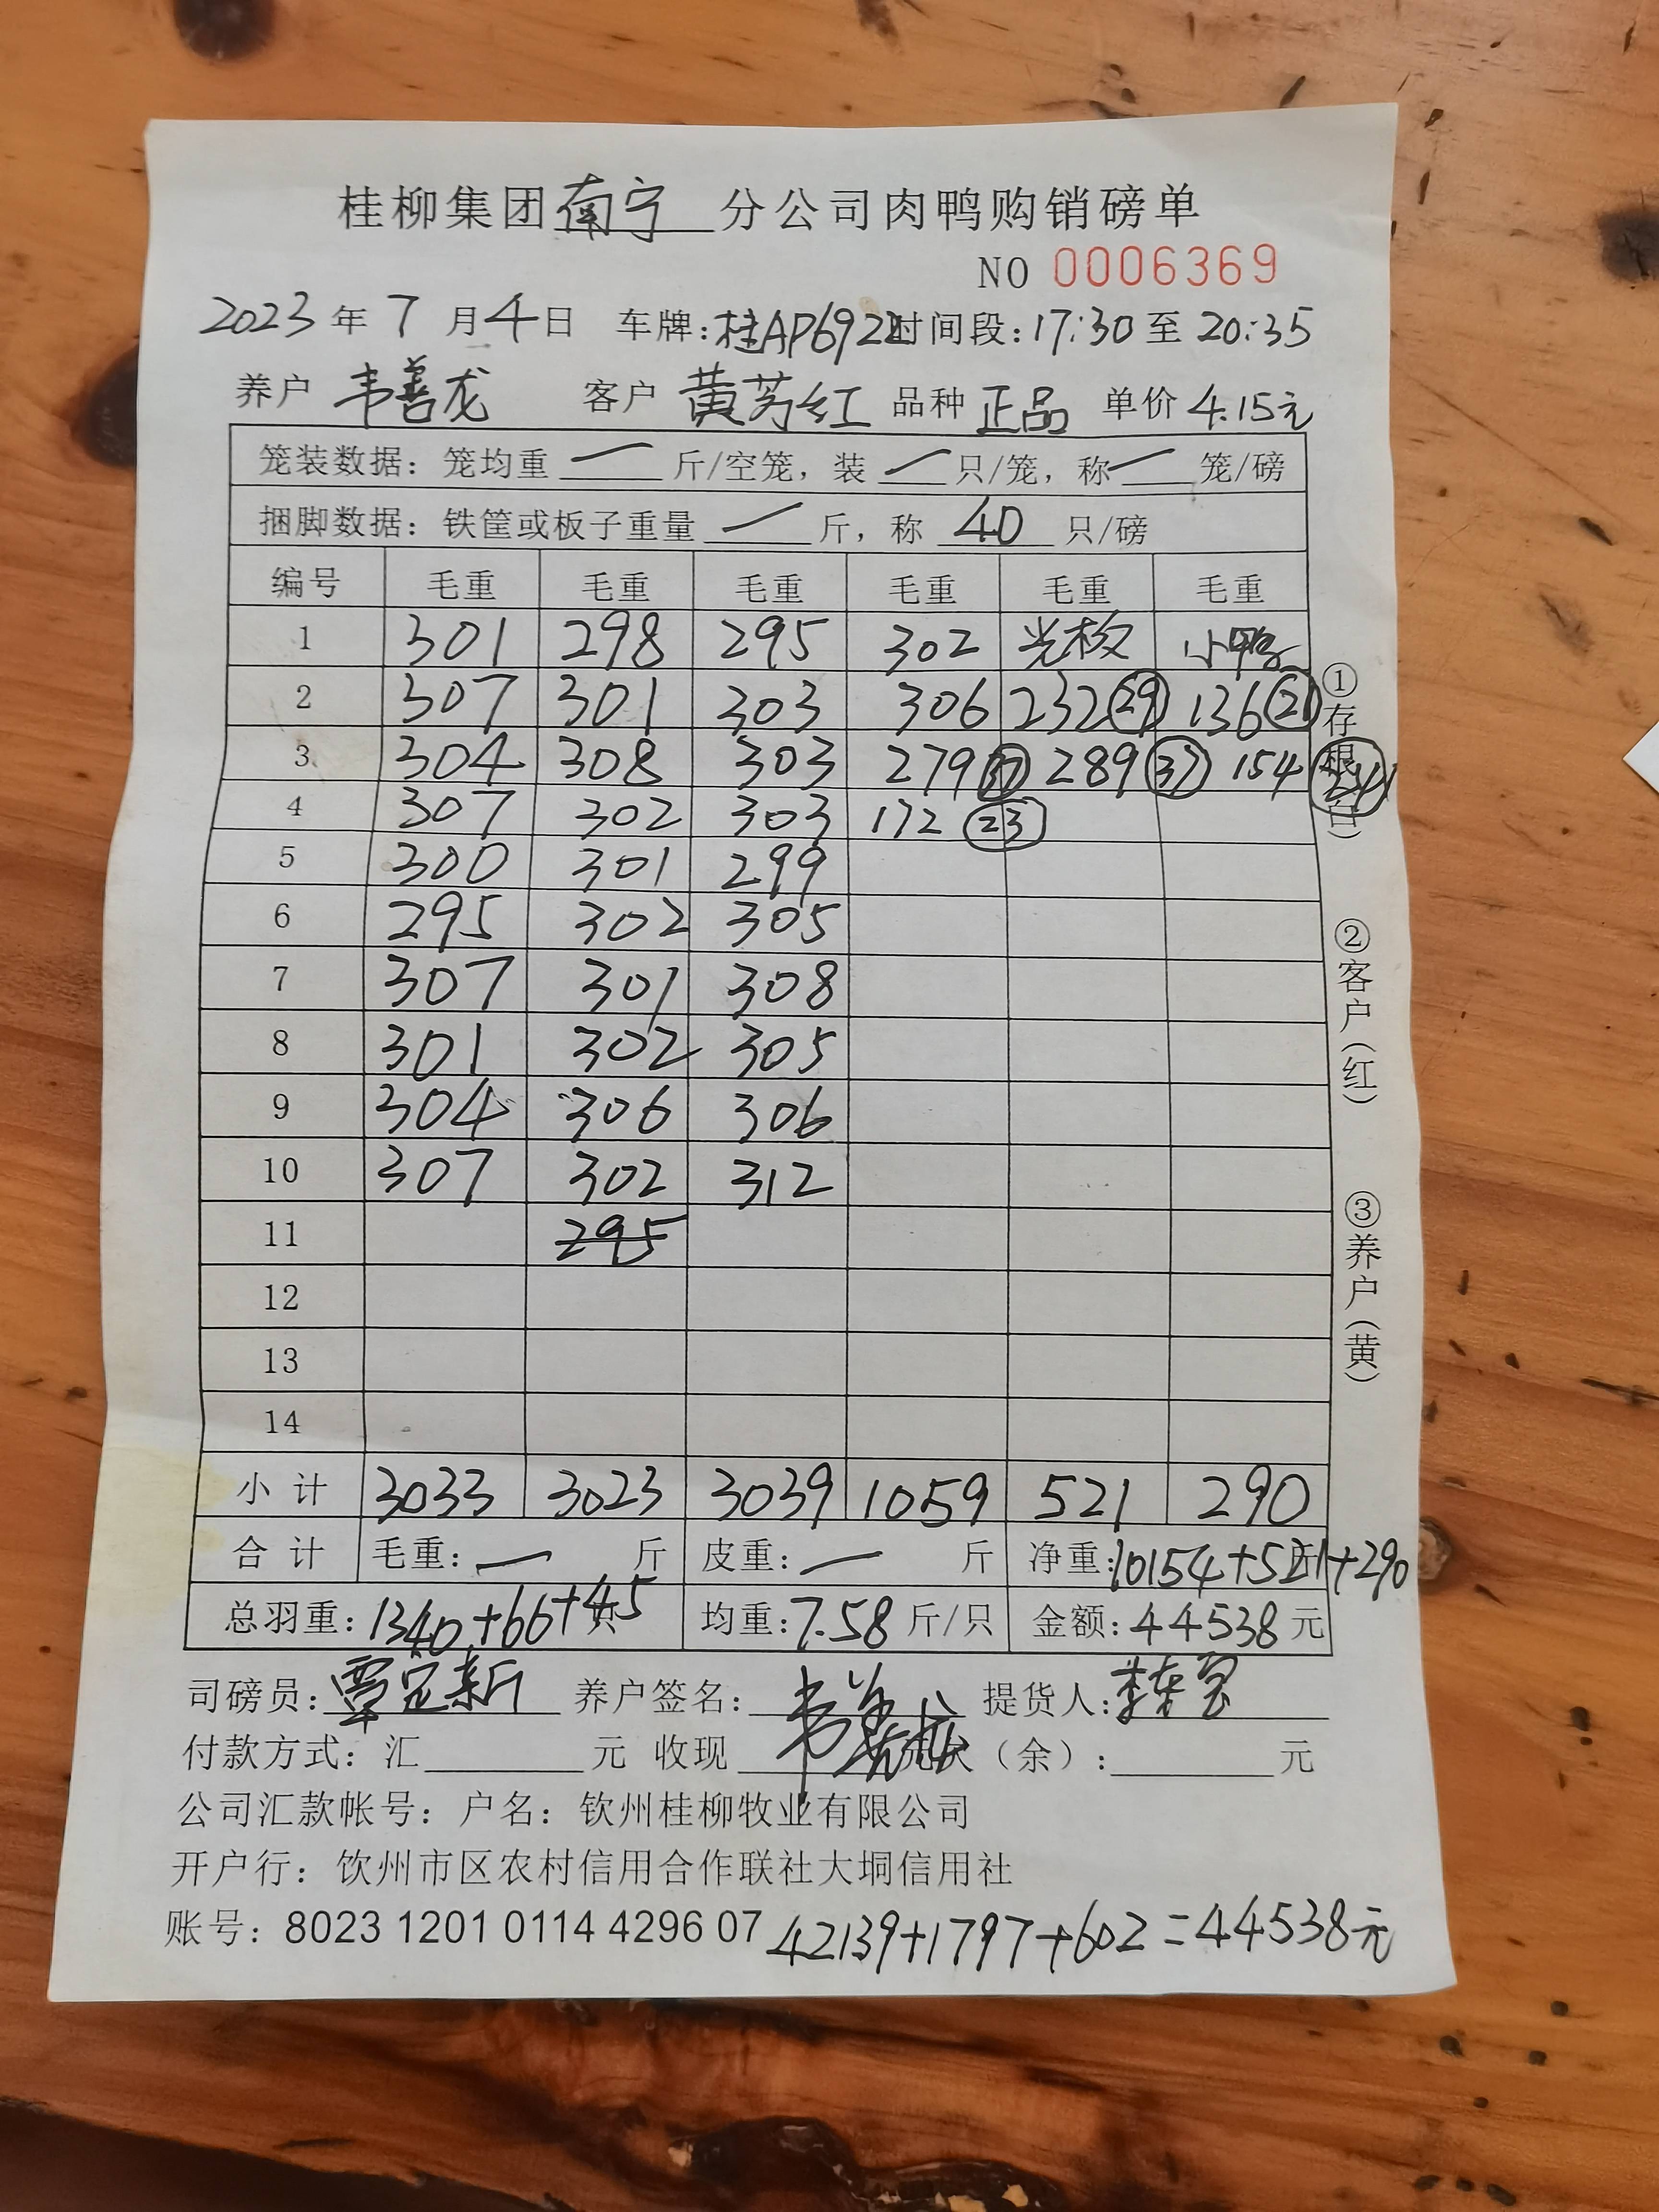 桂柳集团南宁分公司肉鸭购销磅单
NO 0006369
2023年7月4日 车牌:桂AP6922 时间段:17:30至20:35
养户 韦善龙 客户 黄芳红 品种 正品 单价 4.15元
笼装数据：笼均重 — 斤/空笼，装 — 只/笼，称 — 笼/磅
捆脚数据：铁筐或板子重量 — 斤，称 40 只/磅
编号 毛重 毛重 毛重 毛重 毛重 毛重
1 301 298 295 302 光板 小鸭
2 307 301 303 306 232 (29) 136 (21)
3 304 308 303 279 (37) 289 (37) 154 (24)
4 307 302 303 172 (23)
5 300 301 299
6 295 302 305
7 307 301 308
8 301 302 305
9 304 306 306
10 307 302 312
11 295
12
13
14
小计 3033 3023 3039 1059 521 290
合计 毛重：— 斤 皮重：— 斤 净重：10154+521+290
总羽重：1340+66+45只 均重：7.58斤/只 金额：44538元
司磅员： 养户签名：韦善龙 提货人：
付款方式：汇 元 收现 元欠（余）： 元
公司汇款帐号：户名：钦州桂柳牧业有限公司
开户行：饮州市区农村信用合作联社大垌信用社
账号：8023 1201 0114 4296 07 42139+1797+602=44538元
①存根（白）
②客户（红）
③养户（黄）